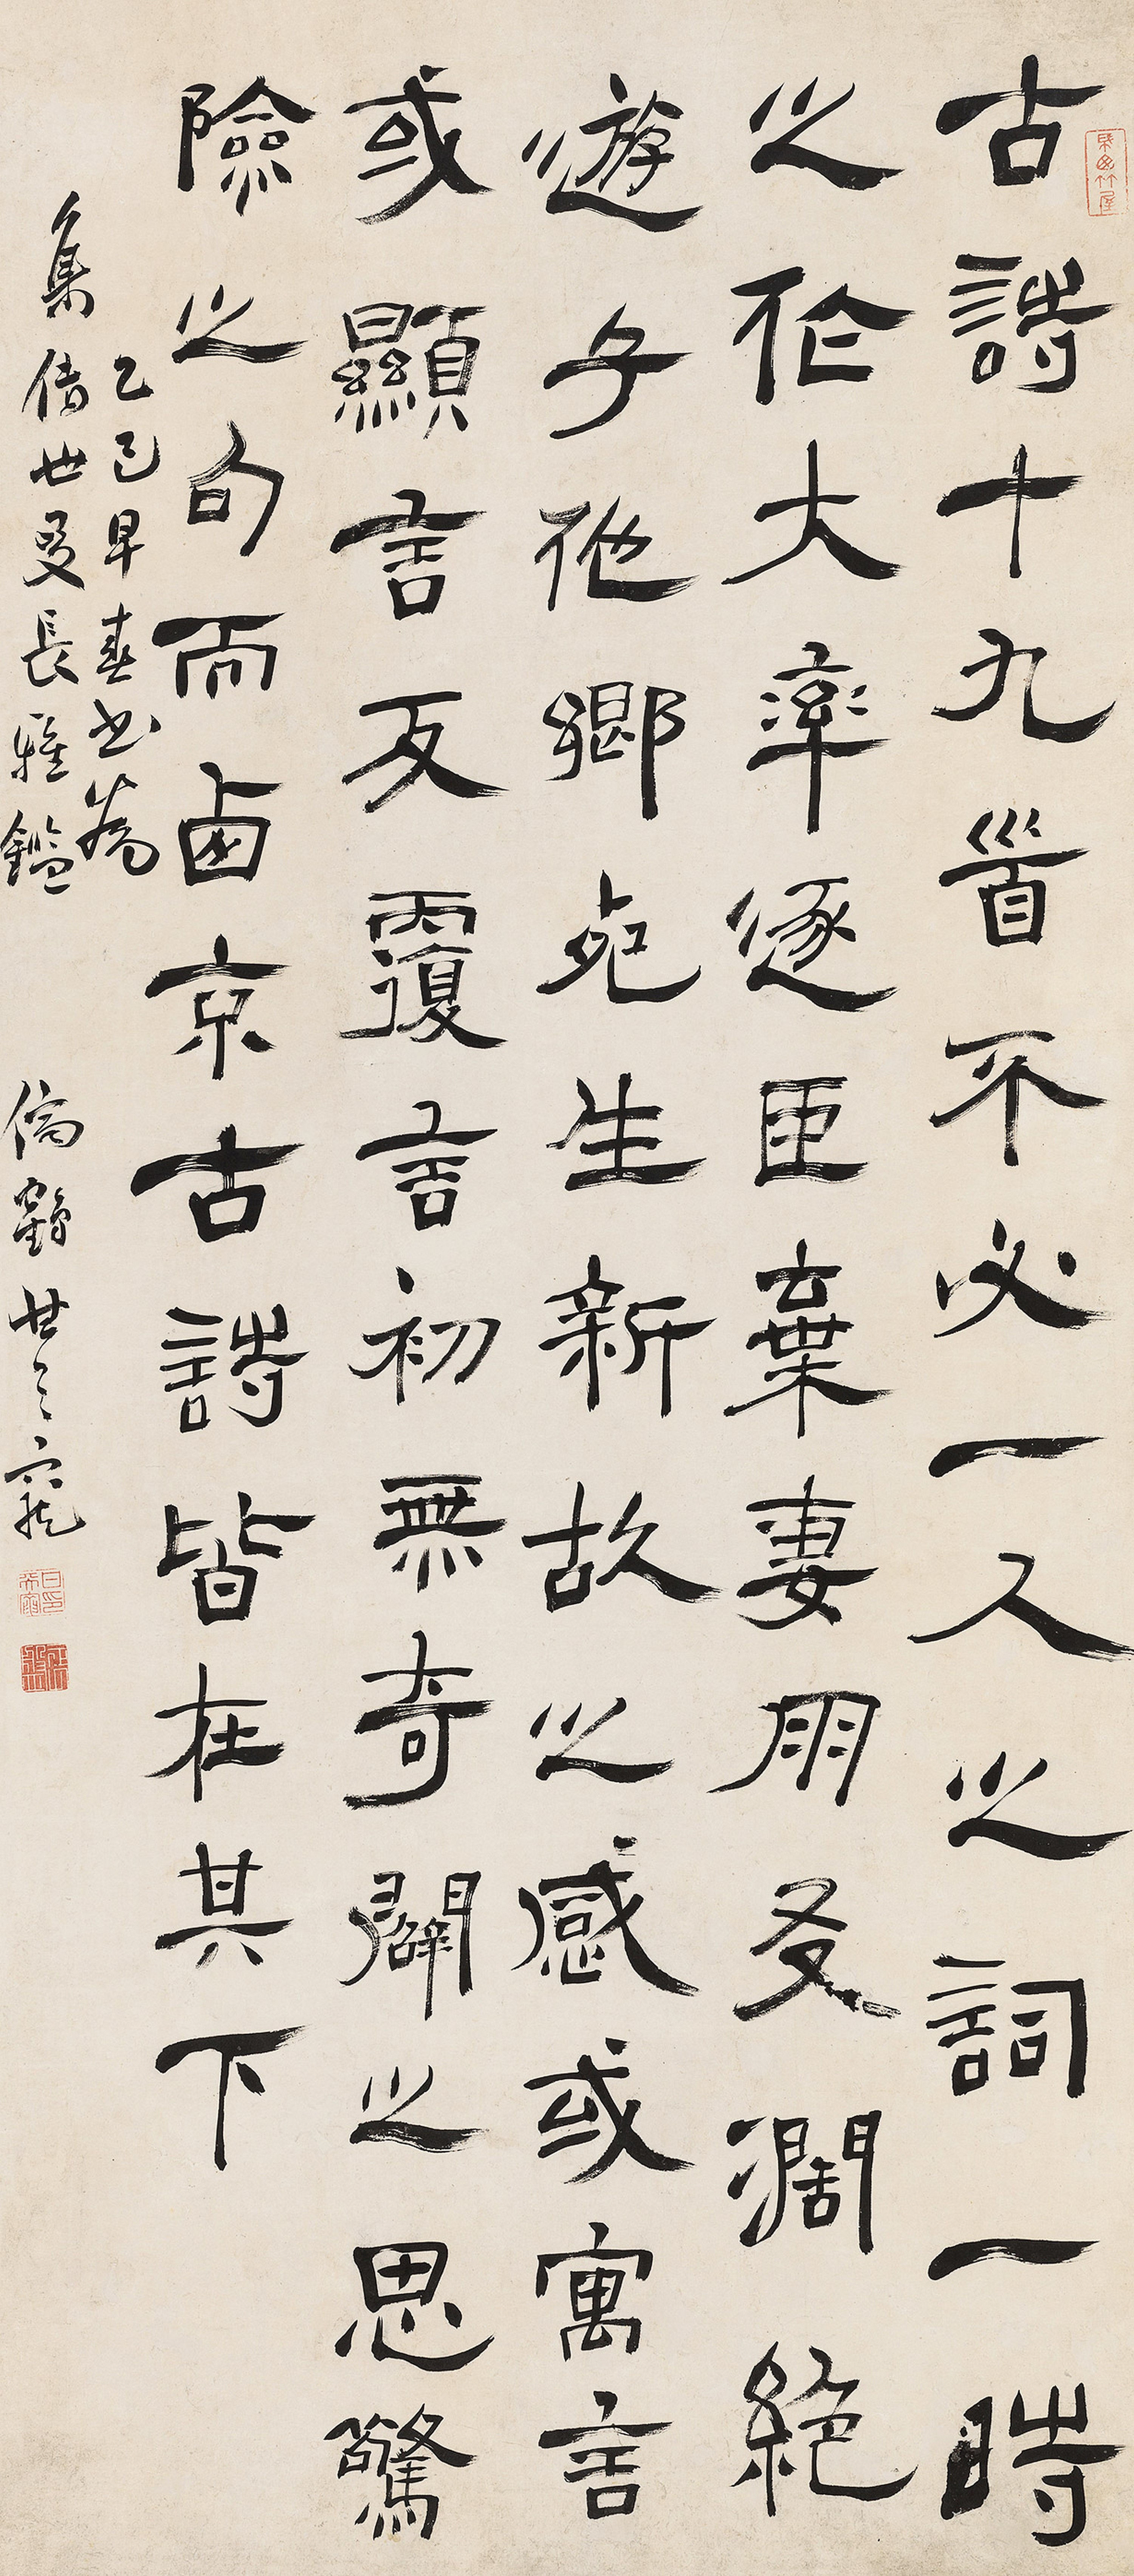 古詩十九首不必一人之詞一時
之作大率逐臣棄妻朋友濶絕
遊子他鄉死生新故之感或寓言
或顯言反覆言初無奇闢之思驚
險之句而西京古詩皆在其下
乙巳早春書為
集倩世長雅鑑